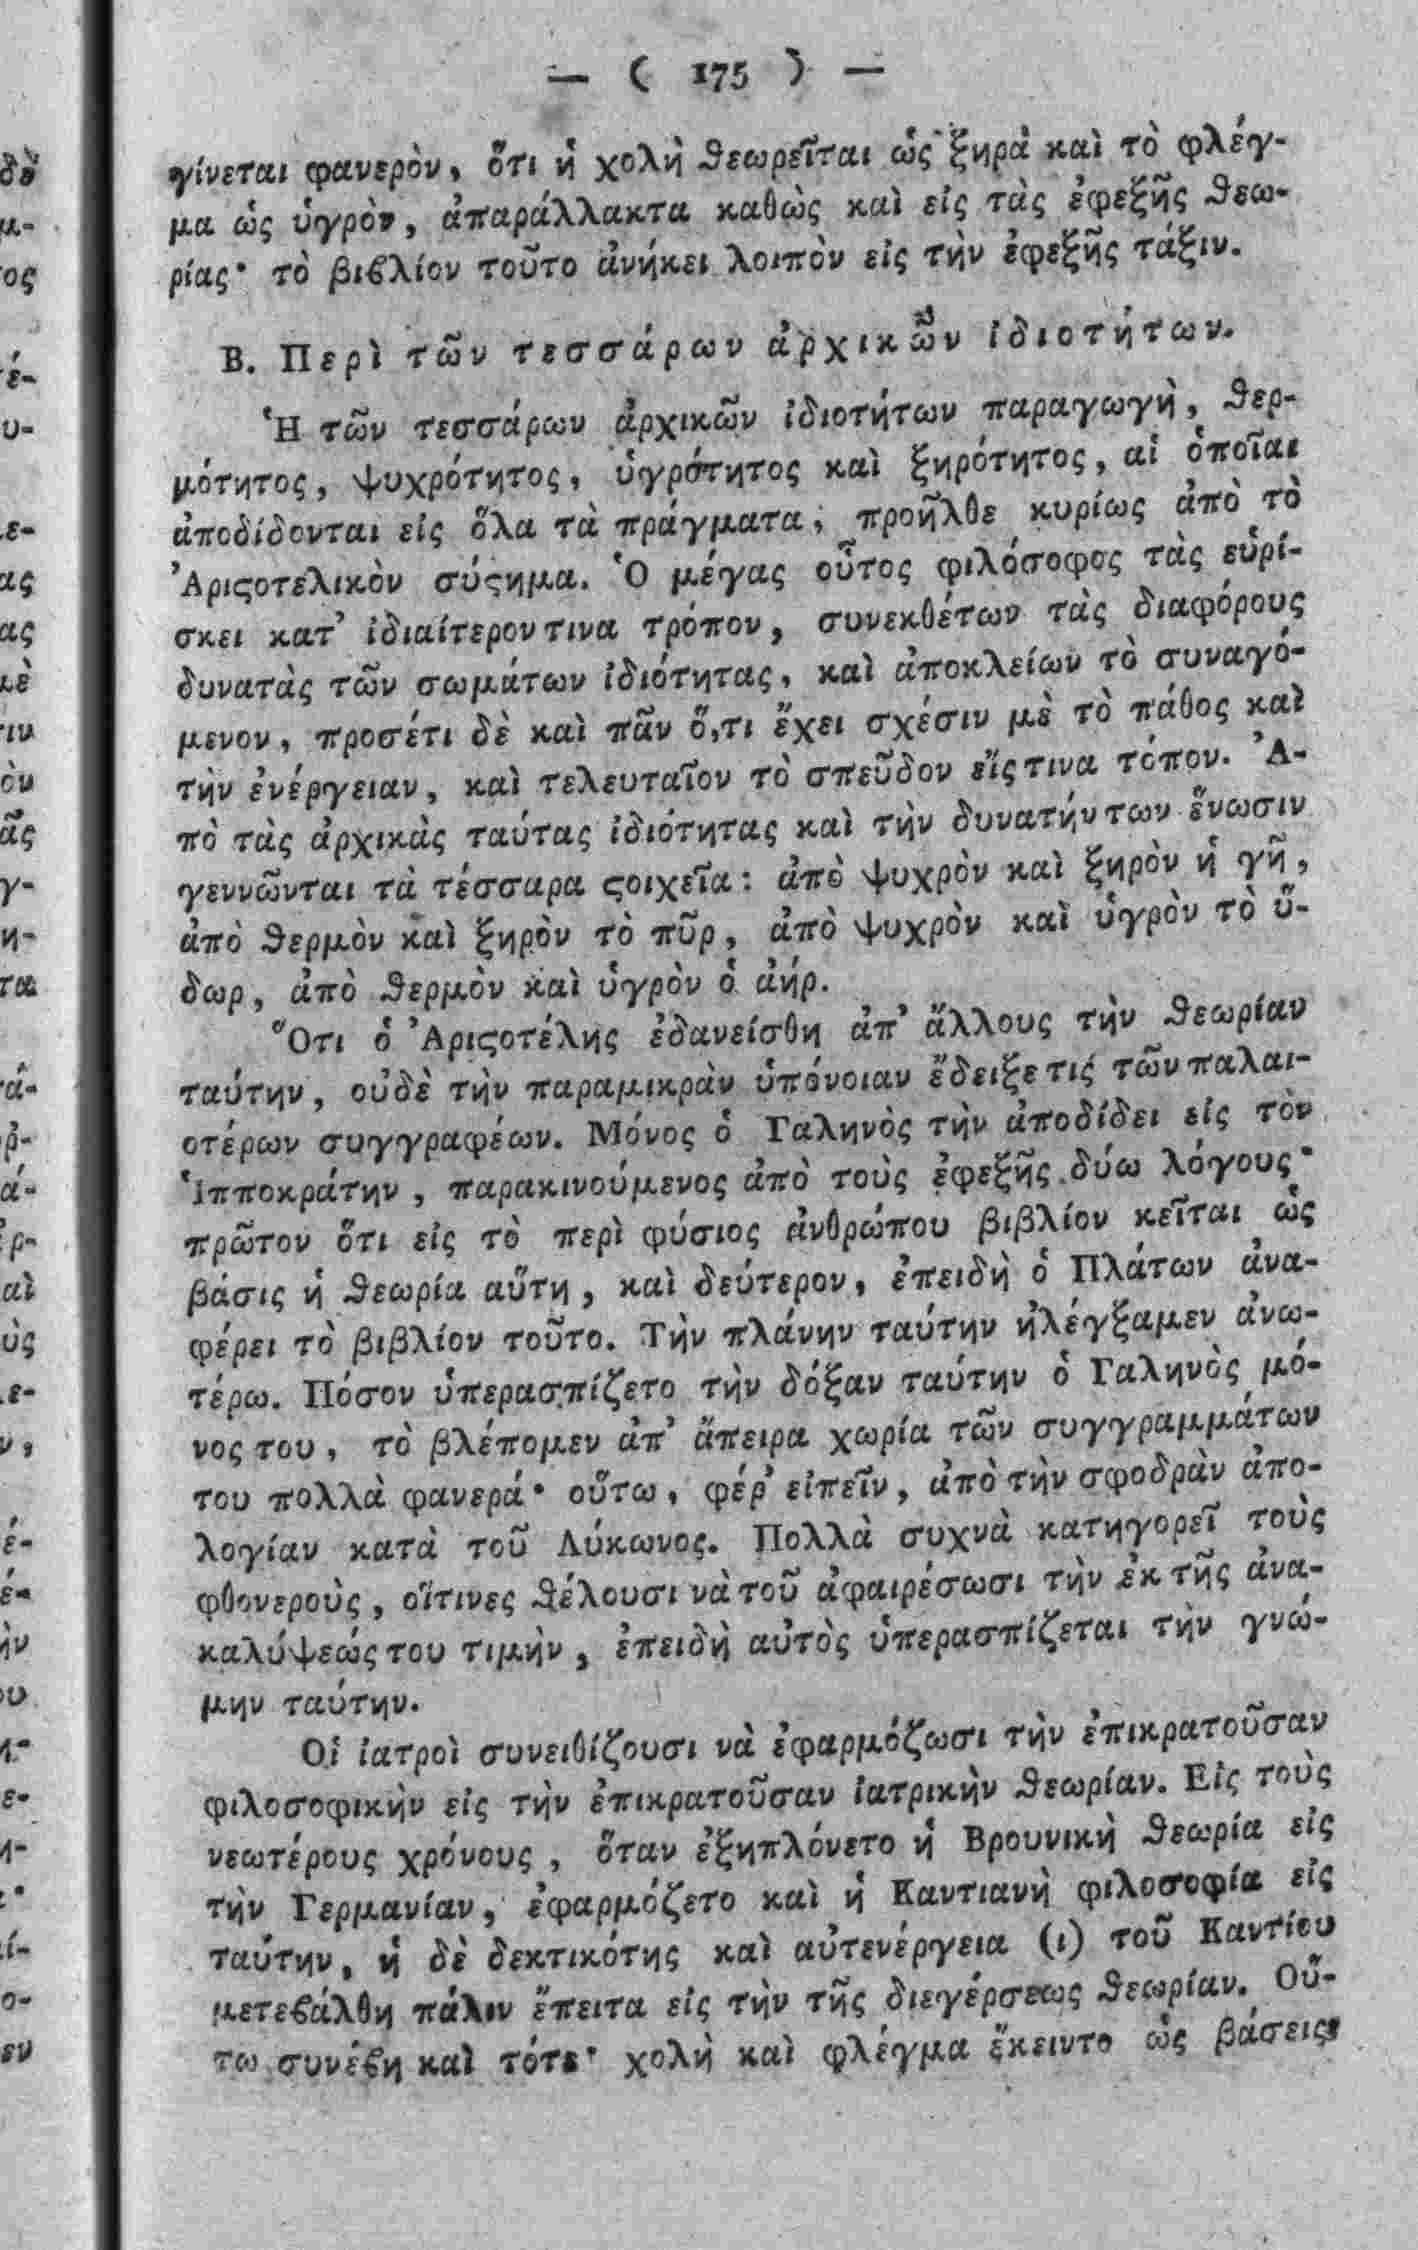 — ( 175 ) —
γίνεται φανερὸν, ὅτι ἡ χολὴ ϑεωρεῖται ὡς ξηρὰ καὶ τὸ φλέγ-
μα ὡς ὑγρὸν, ἀπαράλλακτα καθὼς καὶ εἰς τὰς ἐφεξῆς ϑεω-
ρίας· τὸ βιϐλίον τοῦτο ἀνήκει λοιπὸν εἰς τὴν ἐφεξῆς τάξιν.
Β. Περὶ τῶν τεσσάρων ἀρχικῶν ἰδιοτήτων.
Ἡ τῶν τεσσάρων ἀρχικῶν ἰδιοτήτων παραγωγὴ, ϑερ-
μότητος, ψυχρότητος, ὑγρότητος καὶ ξηρότητος, αἱ ὁποῖαι
ἀποδίδονται εἰς ὅλα τὰ πράγματα, προῆλθε κυρίως ἀπὸ τὸ
Ἀριϛοτελικὸν σύϛημα. Ὁ μέγας οὗτος φιλόσοφος τὰς εὑρί-
σκει κατ' ἰδιαίτερον τινα τρόπον, συνεκθέτων τὰς διαφόρους
δυνατὰς τῶν σωμάτων ἰδιότητας, καὶ ἀποκλείων τὸ συναγό-
μενον, προσέτι δὲ καὶ πᾶν ὅ,τι ἔχει σχέσιν μὲ τὸ πάθος καὶ
τὴν ἐνέργειαν, καὶ τελευταῖον τὸ σπεῦδον εἴς τινα τόπον. Ἀ-
πὸ τὰς ἀρχικὰς ταύτας ἰδιότητας καὶ τὴν δυνατήν των ἕνωσιν
γεννῶνται τὰ τέσσαρα ϛοιχεῖα: ἀπὸ ψυχρὸν καὶ ξηρὸν ἡ γῆ,
ἀπὸ ϑερμὸν καὶ ξηρὸν τὸ πῦρ, ἀπὸ ψυχρὸν καὶ ὑγρὸν τὸ ὕ-
δωρ, ἀπὸ ϑερμὸν καὶ ὑγρὸν ὁ ἀήρ.
Ὅτι ὁ Ἀριϛοτέλης ἐδανείσθη ἀπ' ἄλλους τὴν ϑεωρίαν
ταύτην, οὐδὲ τὴν παραμικρὰν ὑπόνοιαν ἔδειξε τὶς τῶν παλαι-
οτέρων συγγραφέων. Μόνος ὁ Γαληνὸς τὴν ἀποδίδει εἰς τὸν
Ἱπποκράτην, παρακινούμενος ἀπὸ τοὺς ἐφεξῆς δύω λόγους·
πρῶτον ὅτι εἰς τὸ περὶ φύσιος ἀνθρώπου βιβλίον κεῖται ὡς
βάσις ἡ ϑεωρία αὕτη, καὶ δεύτερον, ἐπειδὴ ὁ Πλάτων ἀνα-
φέρει τὸ βιβλίον τοῦτο. Τὴν πλάνην ταύτην ἠλέγξαμεν ἀνω-
τέρω. Πόσον ὑπερασπίζετο τὴν δόξαν ταύτην ὁ Γαληνὸς μό-
νος του, τὸ βλέπομεν ἀπ' ἄπειρα χωρία τῶν συγγραμμάτων
του πολλὰ φανερά· οὕτω, φέρ' εἰπεῖν, ἀπὸ τὴν σφοδρὰν ἀπο-
λογίαν κατὰ τοῦ Λύκωνος. Πολλὰ συχνὰ κατηγορεῖ τοὺς
φθονεροὺς, οἵτινες ϑέλουσι νὰ τοῦ ἀφαιρέσωσι τὴν ἐκ τῆς ἀνα-
καλύψεώς του τιμὴν, ἐπειδὴ αὐτὸς ὑπερασπίζεται τὴν γνώ-
μην ταύτην.
Οἱ ἰατροὶ συνειθίζουσι νὰ ἐφαρμόζωσι τὴν ἐπικρατοῦσαν
φιλοσοφικὴν εἰς τὴν ἐπικρατοῦσαν ἰατρικὴν ϑεωρίαν. Εἰς τοὺς
νεωτέρους χρόνους, ὅταν ἐξηπλόνετο ἡ Βρουνικὴ ϑεωρία εἰς
τὴν Γερμανίαν, ἐφαρμόζετο καὶ ἡ Καντιανὴ φιλοσοφία εἰς
ταύτην, ἡ δὲ δεκτικότης καὶ αὐτενέργεια (ι) τοῦ Καντίου
μετεϐάλθη πάλιν ἔπειτα εἰς τὴν τῆς διεγέρσεως ϑεωρίαν. Οὕ-
τω συνέϐη καὶ τότε· χολὴ καὶ φλέγμα ἔκειντο ὡς βάσεις